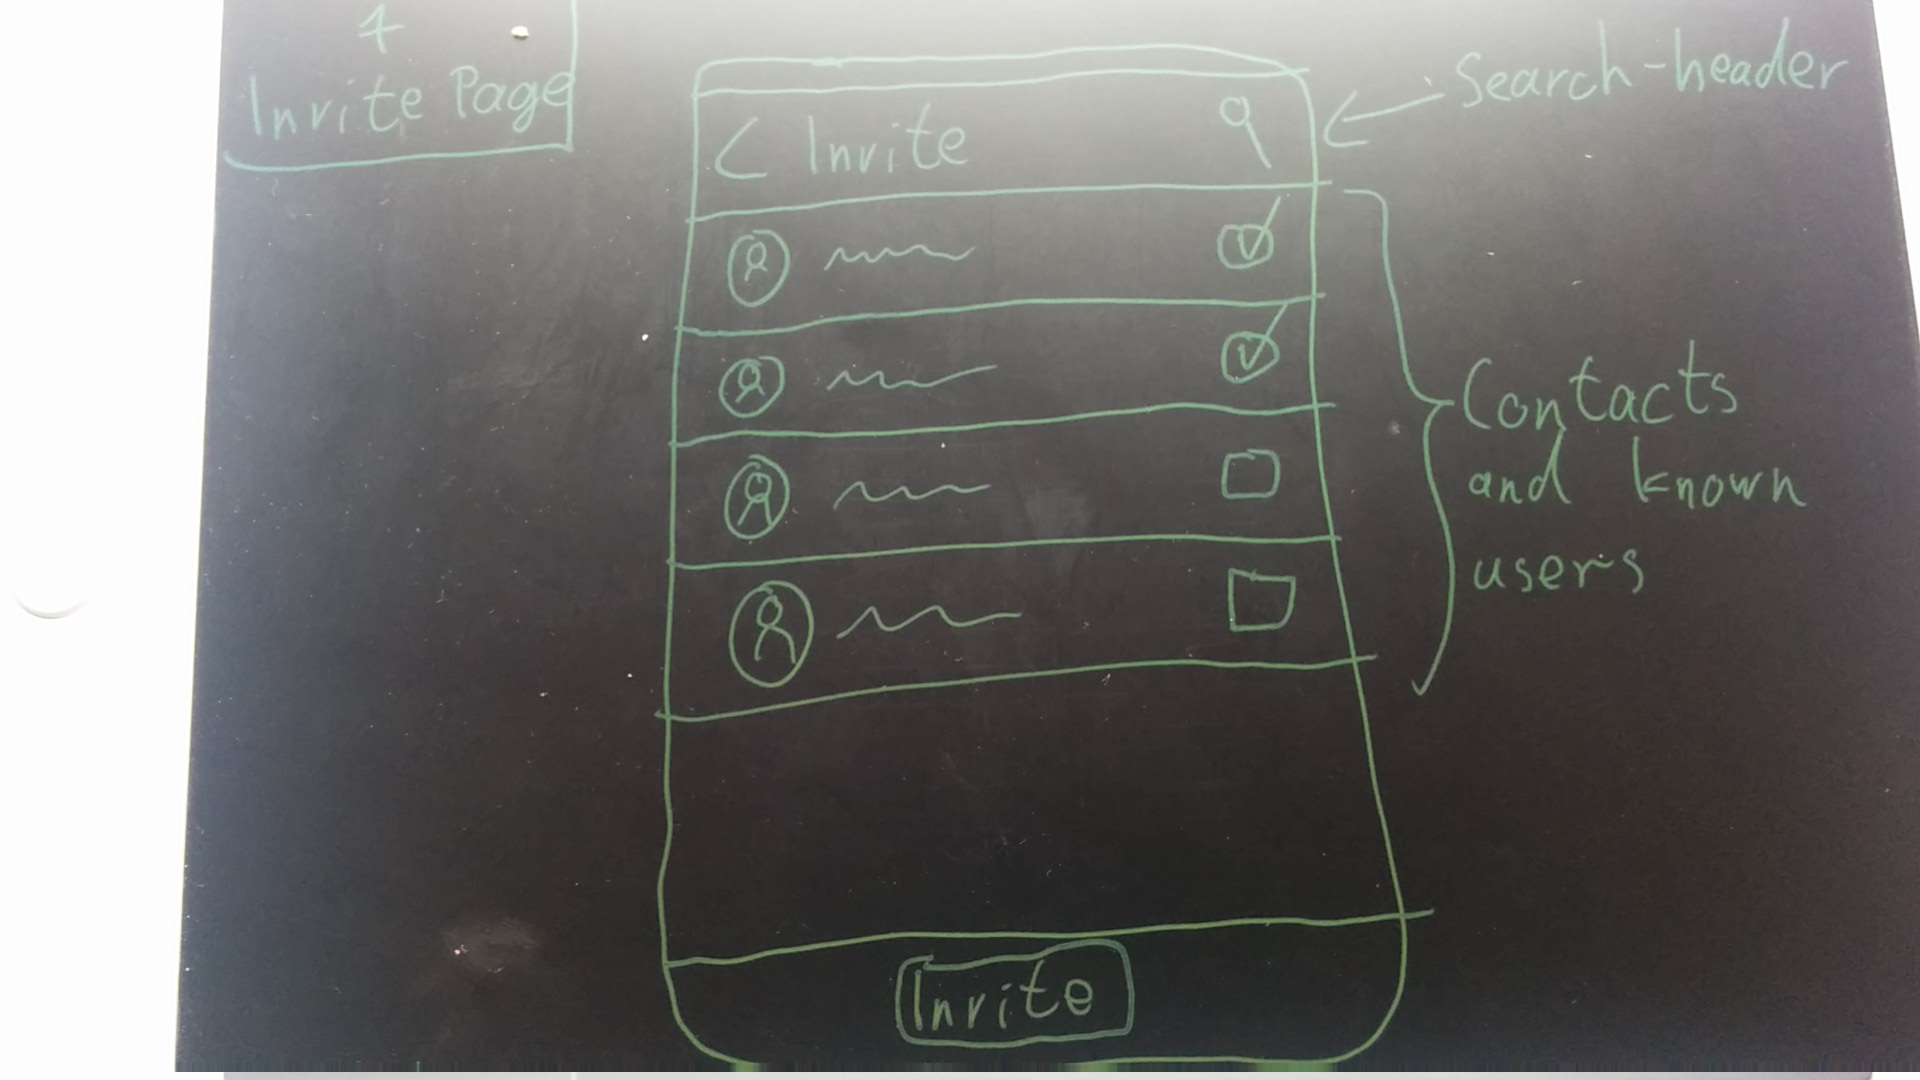 Invite Page
Invite
Search-header
Contacts
and known
users
Invite